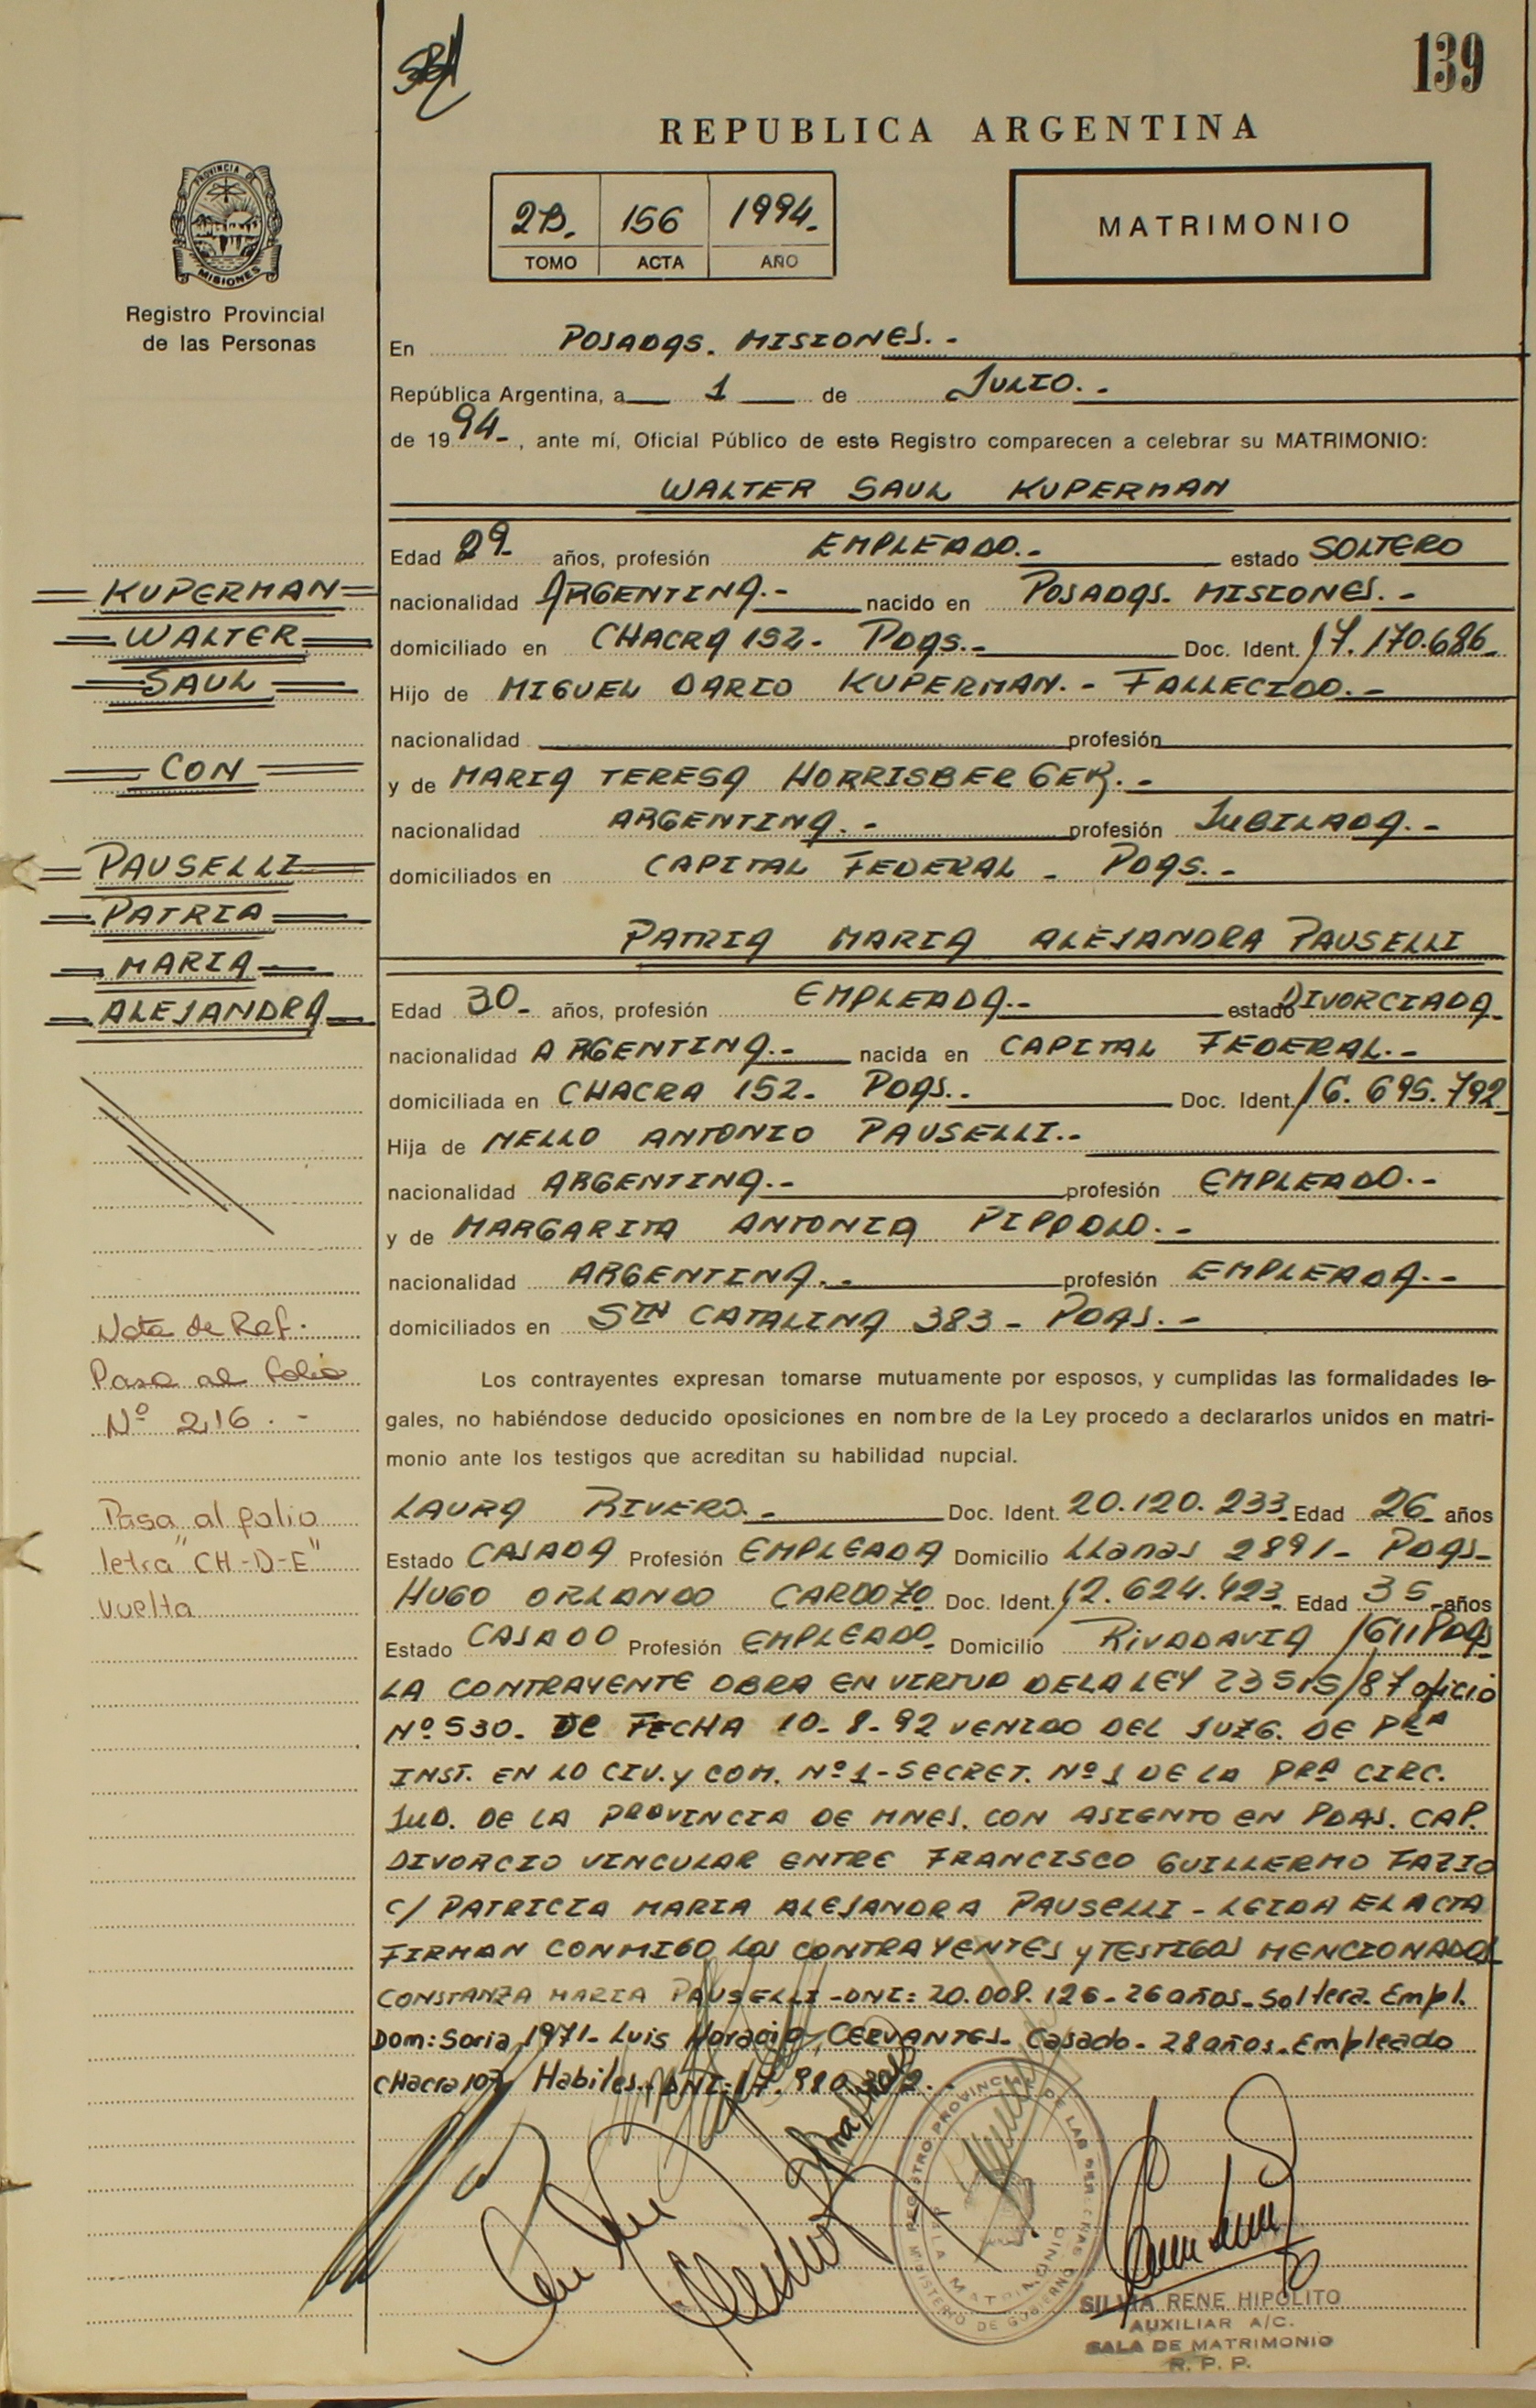 139
REPUBLICA ARGENTINA
2B. 156 1994.-
TOMO ACTA AÑO
MATRIMONIO
PROVINCIA DE
MISIONES
Registro Provincial
de las Personas
En POSADAS. MISIONES. -
República Argentina, a 1 de JULIO. -
de 1994-, ante mí, Oficial Público de este Registro comparecen a celebrar su MATRIMONIO:
WALTER SAUL KUPERMAN
Edad 29- años, profesión EMPLEADO.- estado SOLTERO
nacionalidad ARGENTINA.- nacido en POSADAS. MISIONES. -
domiciliado en CHACRA 152- PDAS.- Doc. Ident. 17.170.686-
Hijo de MIGUEL DARIO KUPERMAN. - FALLECIDO. -
nacionalidad profesión
y de MARIA TERESA HORRISBERGER. -
nacionalidad ARGENTINA. - profesión JUBILADA. -
domiciliados en CAPITAL FEDERAL - PDAS. -
KUPERMAN
WALTER
SAUL
CON
PAUSELLI
PATRIA
MARIA
ALEJANDRA
PATRIA MARIA ALEJANDRA PAUSELLI
Edad 30- años, profesión EMPLEADA.- estado DIVORCIADA-
nacionalidad ARGENTINA.- nacida en CAPITAL FEDERAL. -
domiciliada en CHACRA 152- PDAS.- Doc. Ident. 16.695.792
Hija de NELLO ANTONIO PAUSELLI.-
nacionalidad ARGENTINA.- profesión EMPLEADO. -
y de MARGARITA ANTONIA PIPPOLO. -
nacionalidad ARGENTINA. - profesión EMPLEADA. -
domiciliados en STA CATALINA 383- PDAS. -
Nota de Ref.
Pasa al folio
Nº 216. -
Pasa al folio
letra "CH-D-E"
vuelta
Los contrayentes expresan tomarse mutuamente por esposos, y cumplidas las formalidades le-
gales, no habiéndose deducido oposiciones en nombre de la Ley procedo a declararlos unidos en matri-
monio ante los testigos que acreditan su habilidad nupcial.
LAURA RIVERO.- Doc. Ident. 20.120.233- Edad 26- años
Estado CASADA Profesión EMPLEADA Domicilio Llanas 2891- PDAS-
HUGO ORLANDO CARDOZO Doc. Ident. 12.624.423- Edad 35- años
Estado CASADO Profesión EMPLEADO- Domicilio RIVADAVIA 1611 PDAS
LA CONTRAYENTE OBRA EN VIRTUD DE LA LEY 23515/87 oficio
Nº 530- DE FECHA 10-8-92 VENIDO DEL JUZG. DE PRA
INST. EN LO CIV. y COM. Nº 1 - SECRET. Nº 1 DE LA PRA CIRC.
JUD. DE LA PROVINCIA DE MNES. CON ASIENTO EN PDAS. CAP.
DIVORCIO VINCULAR ENTRE FRANCISCO GUILLERMO FAZIO
C/ PATRICIA MARIA ALEJANDRA PAUSELLI - LEIDA EL ACTA
FIRMAN CONMIGO LOS CONTRAYENTES y TESTIGOS MENCIONADOS
CONSTANZA MARIA PAUSELLI - DNI: 20.008.126- 26 años- Soltera- Empl.
Dom: Soria 1971- Luis Horacio CERVANTES- Casado- 28 años- Empleado
CHacra 107 Habiles.. DNI: 17.980.
REGISTRO PROVINCIAL DE LAS PERSONAS
SALA MATRIMONIO
MINISTERIO DE GOBIERNO
SILVIA RENE HIPOLITO
AUXILIAR A/C.
SALA DE MATRIMONIO
R. P. P.